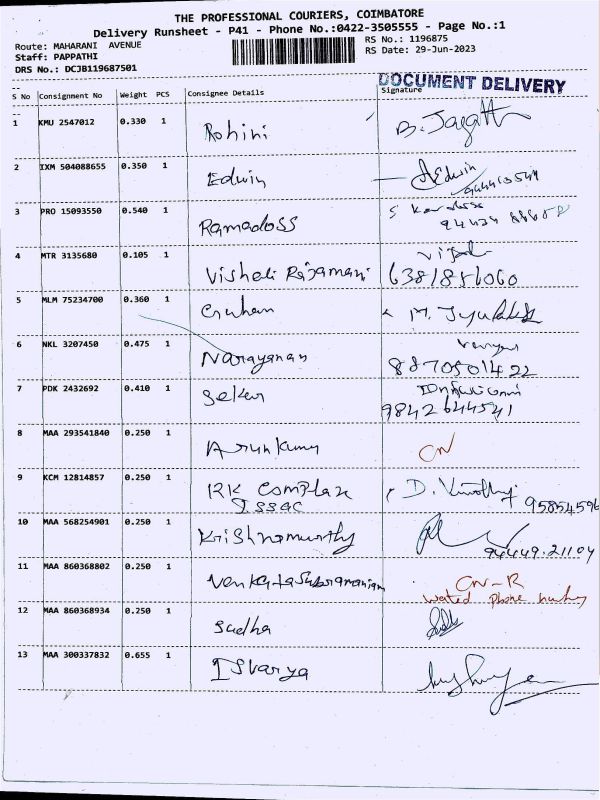 THE PROFESSIONAL COURIERS, COIMBATORE
Delivery Runsheet - P41 - Phone No.:0422-3505555 - Page No.:1
Route: MAHARANI AVENUE
RS No.: 1196875
Staff: PAPPATHI
RS Date: 29-Jun-2023
DRS No.: DCJB119687501
DOCUMENT DELIVERY
S No Consignment No Weight PCS Consignee Details Signature
1 KMU 2547012 0.330 1 Rohini B. Jagath
2 IXM 504088655 0.350 1 Edwin Edwin
3 PRO 15093550 0.540 1 Ramadoss
4 MTR 3135680 0.105 1 Vishali Rajamani
6381856060
5 MLM 75234700 0.360 1 Guhan M.
6 NKL 3207450 0.475 1 Narayanan
8870501422
7 PDK 2432692 0.410 1 Sekar
9842644541
8 MAA 293541840 0.250 1 Arunkumar CN
9 KCM 12814857 0.250 1 RK Complax D.
ISSAC 95854596
10 MAA 568254901 0.250 1 Krishnamurthy
94449.21104
11 MAA 860368802 0.250 1 Venkatasubramaniam CN-R
phone
12 MAA 860368934 0.250 1 Sudha
13 MAA 300337832 0.655 1 Isvarya